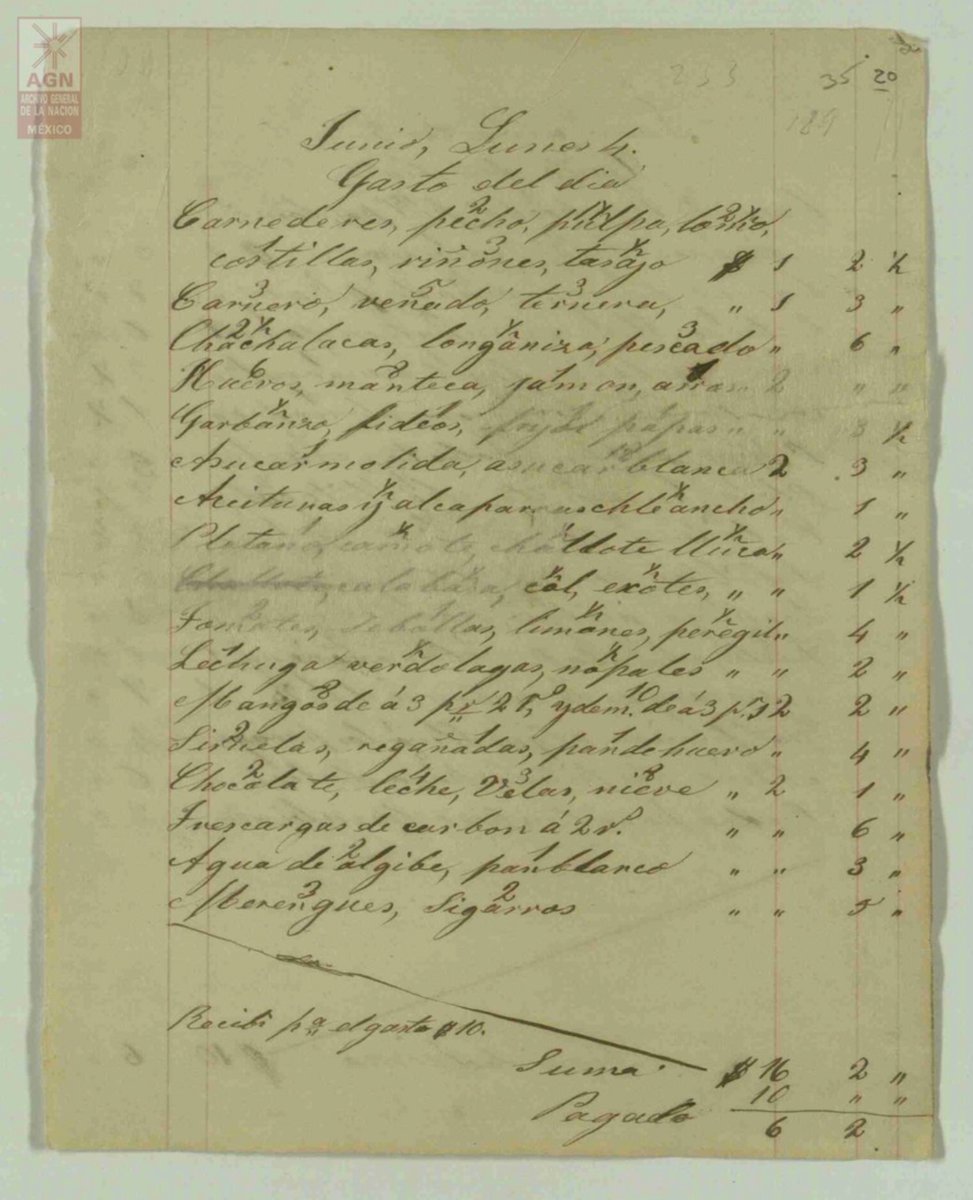 AGN
ARCHIVO GENERAL
DE LA NACION
MÉXICO
233 35 20
189
Junio, Lunes 4.
Gasto del dia
2 1½ 2½
Carne de res, pecho, pulpa, lomo,
1 3 ½
costillas, riñones, tasajo $ 1 2 ½
3 5 3
Carnero, venado, ternera, " 1 3 "
2½ ½ 3
Chachalacas, longaniza, pescado " 6 "
8 8
Huevos, manteca, jamon, 2 " "
½ 1
Garbanzo, fideos, papas " " 3 ½
Asucar molida, asucar blanca 2 3 "
½ ½
Aceitunas y alcaparras chile ancho " 1 "
½ ½
Platano, camote, challote " 2 ½
½ ½
calabaza, col, exotes, " " 1 ½
2 1 ½ ½
Tomates, sebollas, limones, peregil " 4 "
1 ½ ½
Lechuga verdolagas, nopales " " 2 "
8 10
Mangos de á 3 pr 2 rs, y dem. de á 3 p. 2 2 "
2 1 1
Siruelas, regañadas, pan de huevo " 4 "
2 4 3 8
Chocolate, leche, Velas, nieve " 2 1 "
Tres cargas de carbon á 2 rs. " " 6 "
2 1
Agua de algibe, pan blanco " " 3 "
3 2
Merengues, Sigarros " " 5 "
Recibi pa el gasto $ 10.
Suma. $ 16 2 "
10 " "
Pagado 6 2